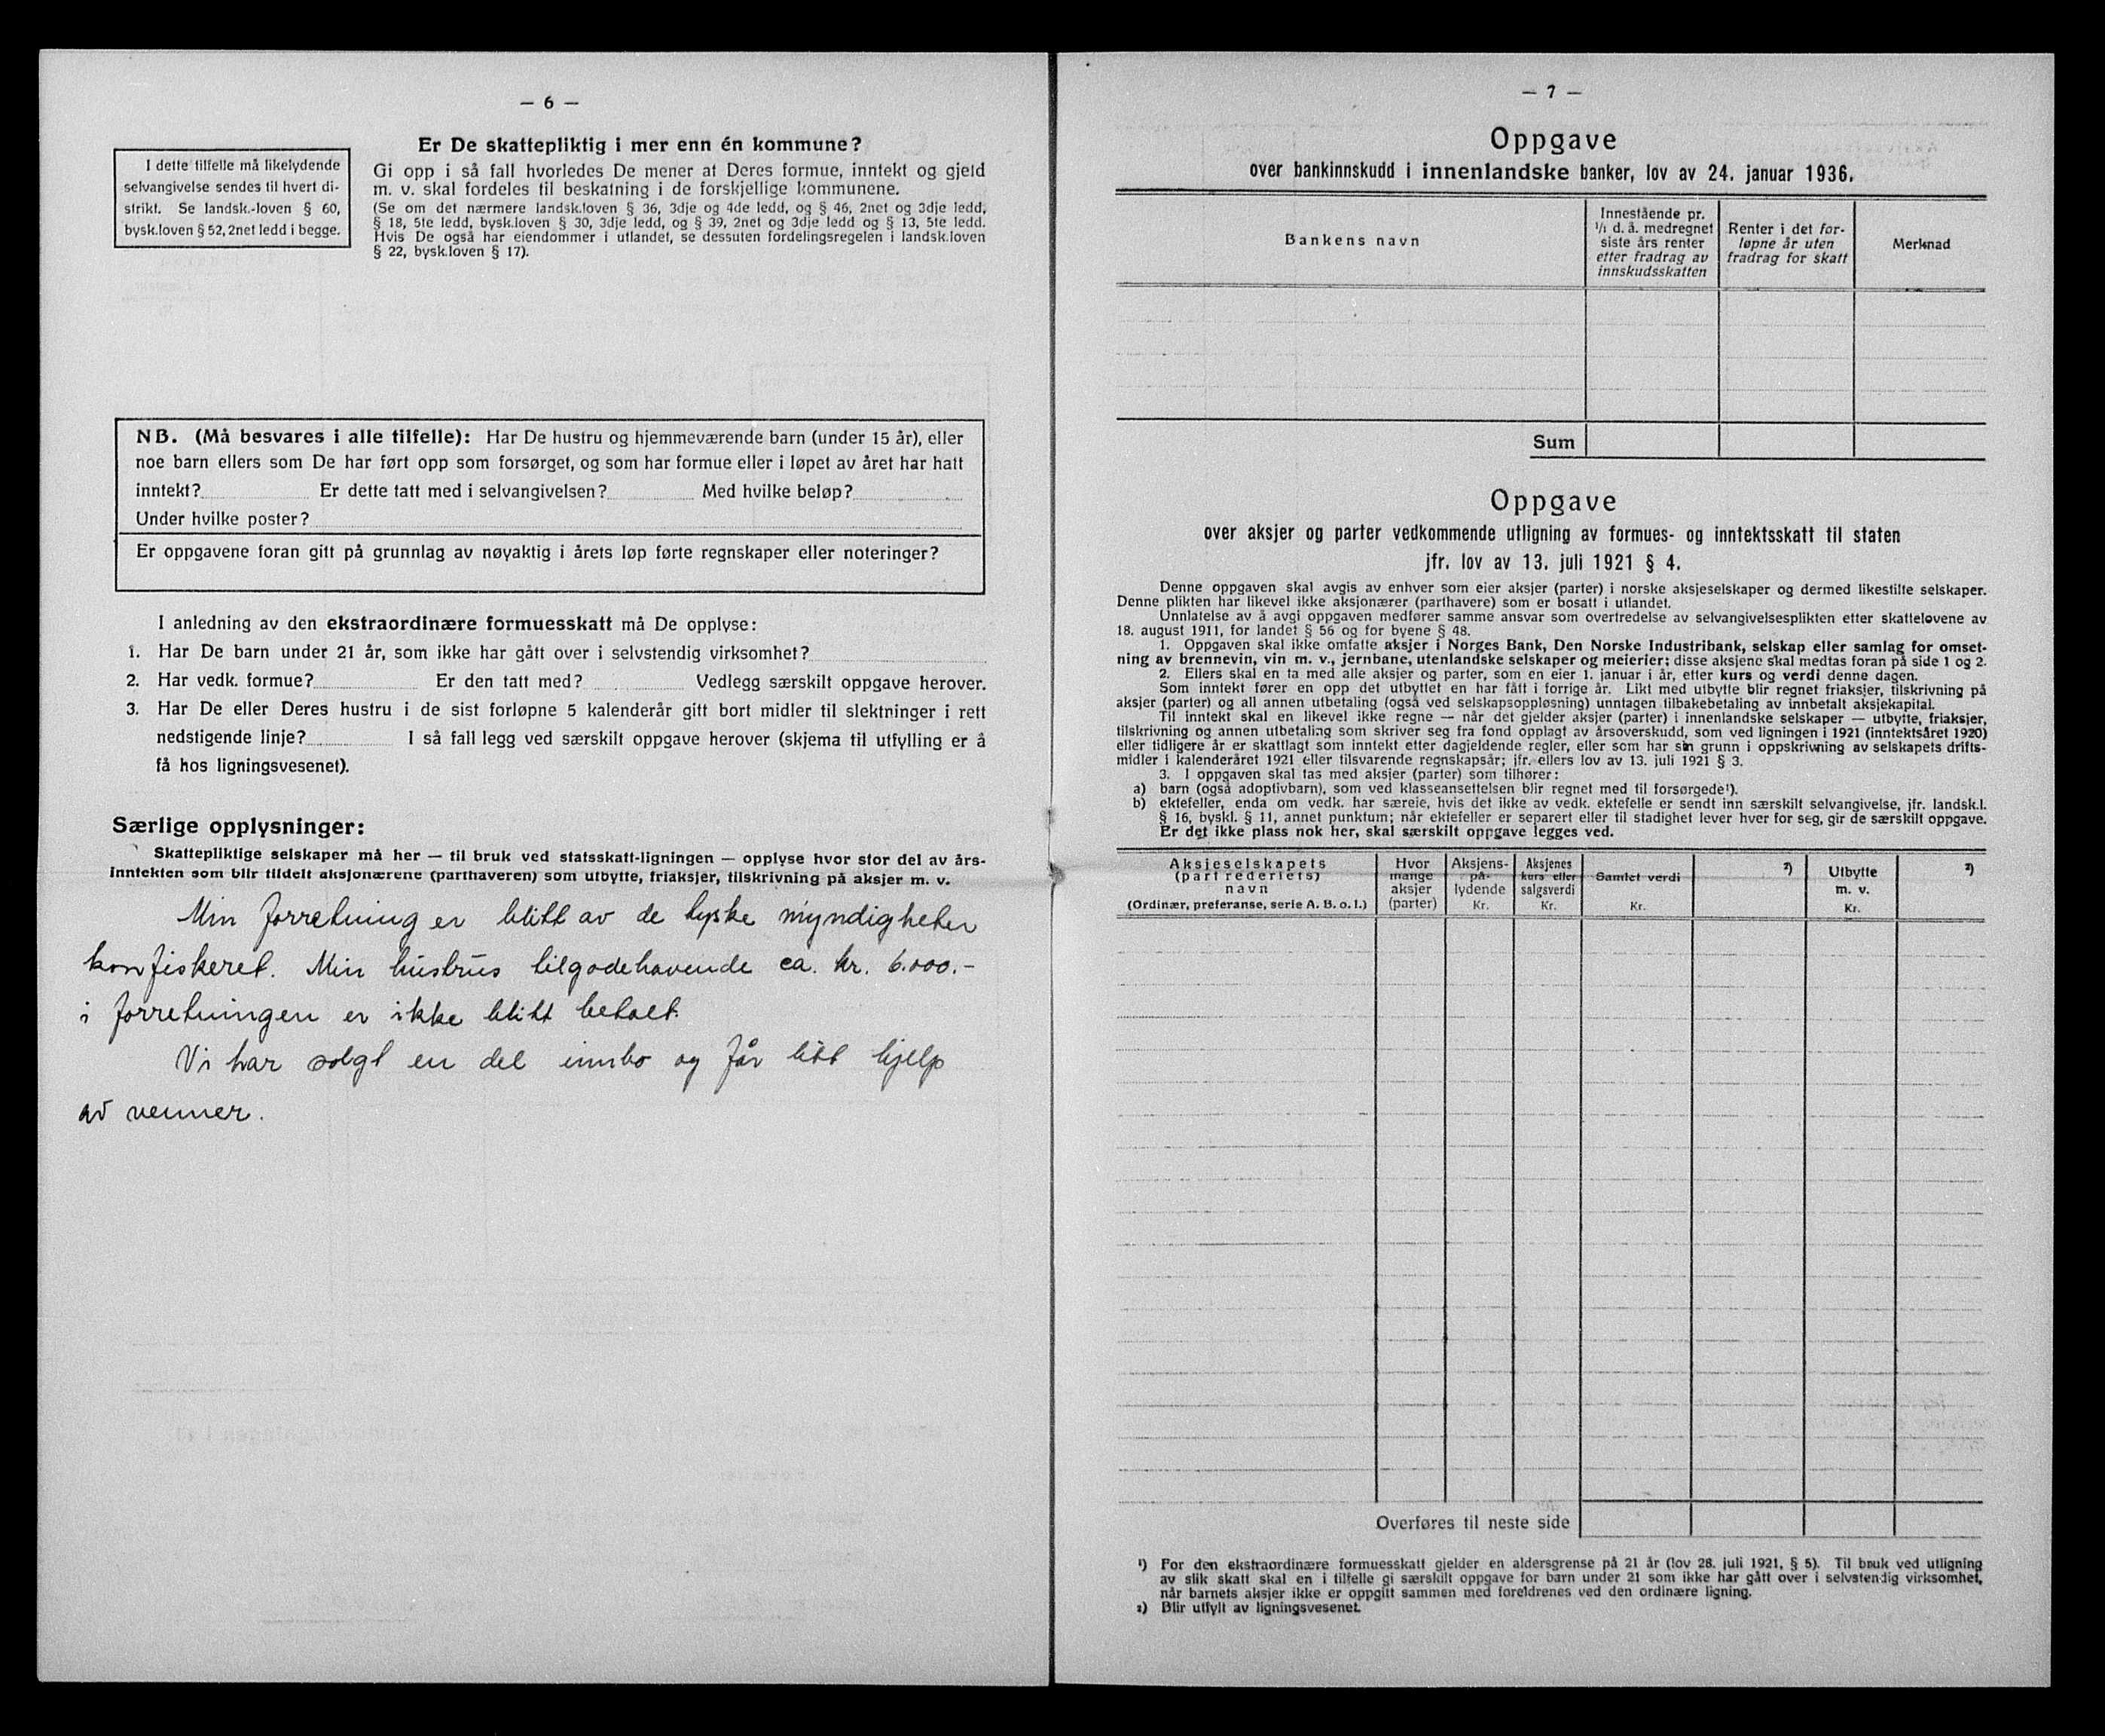 — 6 —
I dette tilfelle må likelydende
selvangivelse sendes til hvert di-
strikt. Se landsk.-loven § 60,
bysk.loven § 52, 2net ledd i begge.
Er De skattepliktig i mer enn én kommune?
Gi opp i så fall hvorledes De mener at Deres formue, inntekt og gjeld
m. v. skal fordeles til beskatning i de forskjellige kommunene.
(Se om det nærmere landsk.loven § 36, 3dje og 4de ledd, og § 46, 2net og 3dje ledd,
§ 18, 5te ledd, bysk.loven § 30, 3dje ledd, og § 39, 2net og 3dje ledd og § 13, 5te ledd.
Hvis De også har eiendommer i utlandet, se dessuten fordelingsregelen i landsk.loven
§ 22, bysk.loven § 17).
NB. (Må besvares i alle tilfelle): Har De hustru og hjemmeværende barn (under 15 år), eller
noe barn ellers som De har ført opp som forsørget, og som har formue eller i løpet av året har hatt
inntekt? Er dette tatt med i selvangivelsen? Med hvilke beløp?
Under hvilke poster?
Er oppgavene foran gitt på grunnlag av nøyaktig i årets løp førte regnskaper eller noteringer?
I anledning av den ekstraordinære formuesskatt må De opplyse:
1. Har De barn under 21 år, som ikke har gått over i selvstendig virksomhet?
2. Har vedk. formue? Er den tatt med? Vedlegg særskilt oppgave herover.
3. Har De eller Deres hustru i de sist forløpne 5 kalenderår gitt bort midler til slektninger i rett
nedstigende linje? I så fall legg ved særskilt oppgave herover (skjema til utfylling er å
få hos ligningsvesenet).
Særlige opplysninger:
Skattepliktige selskaper må her — til bruk ved statsskatt-ligningen — opplyse hvor stor del av års-
inntekten som blir tildelt aksjonærene (parthaveren) som utbytte, friaksjer, tilskrivning på aksjer m. v.
Min forretning er blitt av de tyske myndigheter
konfiskeret. Min hustrus tilgodehavende ca. kr. 6.000.-
i forretningen er ikke blitt betalt.
Vi har solgt en del innbo og får litt hjelp
av venner.
— 7 —
Oppgave
over bankinnskudd i innenlandske banker, lov av 24. januar 1936.
Bankens navn
Innestående pr.
1/1 d. å. medregnet
siste års renter
etter fradrag av
innskudsskatten
Renter i det for-
løpne år uten
fradrag for skatt
Merknad
Sum
Oppgave
over aksjer og parter vedkommende utligning av formues- og inntektsskatt til staten
jfr. lov av 13. juli 1921 § 4.
Denne oppgaven skal avgis av enhver som eier aksjer (parter) i norske aksjeselskaper og dermed likestilte selskaper.
Denne plikten har likevel ikke aksjonærer (parthavere) som er bosatt i utlandet.
Unnlatelse av å avgi oppgaven medfører samme ansvar som overtredelse av selvangivelsesplikten etter skattelovene av
18. august 1911, for landet § 56 og for byene § 48.
1. Oppgaven skal ikke omfatte aksjer i Norges Bank, Den Norske Industribank, selskap eller samlag for omset-
ning av brennevin, vin m. v., jernbane, utenlandske selskaper og meierier; disse aksjene skal medtas foran på side 1 og 2.
2. Ellers skal en ta med alle aksjer og parter, som en eier 1. januar i år, etter kurs og verdi denne dagen.
Som inntekt fører en opp det utbyttet en har fått i forrige år. Likt med utbytte blir regnet friaksjer, tilskrivning på
aksjer (parter) og all annen utbetaling (også ved selskapsoppløsning) unntagen tilbakebetaling av innbetalt aksjekapital.
Til inntekt skal en likevel ikke regne — når det gjelder aksjer (parter) i innenlandske selskaper — utbytte, friaksjer,
tilskrivning og annen utbetaling som skriver seg fra fond opplagt av årsoverskudd, som ved ligningen i 1921 (inntektsåret 1920)
eller tidligere år er skattlagt som inntekt etter dagjeldende regler, eller som har sin grunn i oppskrivning av selskapets drifts-
midler i kalenderåret 1921 eller tilsvarende regnskapsår; jfr. ellers lov av 13. juli 1921 § 3.
3. I oppgaven skal tas med aksjer (parter) som tilhører:
a) barn (også adoptivbarn), som ved klasseansettelsen blir regnet med til forsørgede¹).
b) ektefeller, enda om vedk. har særeie, hvis det ikke av vedk. ektefelle er sendt inn særskilt selvangivelse, jfr. landsk.l.
§ 16, byskl. § 11, annet punktum; når ektefeller er separert eller til stadighet lever hver for seg, gir de særskilt oppgave.
Er det ikke plass nok her, skal særskilt oppgave legges ved.
Aksjeselskapets
(partrederiets)
navn
(Ordinær, preferanse, serie A. B. o. l.)
Hvor
mange
aksjer
(parter)
Aksjens-
på-
lydende
Kr.
Aksjenes
kurs eller
salgsverdi
Kr.
Samlet verdi
Kr.
²)
Utbytte
m. v.
Kr.
²)
Overføres til neste side
¹) For den ekstraordinære formuesskatt gjelder en aldersgrense på 21 år (lov 28. juli 1921, § 5). Til bruk ved utligning
av slik skatt skal en i tilfelle gi særskilt oppgave for barn under 21 som ikke har gått over i selvstendig virksomhet,
når barnets aksjer ikke er oppgitt sammen med foreldrenes ved den ordinære ligning.
²) Blir utfylt av ligningsvesenet.